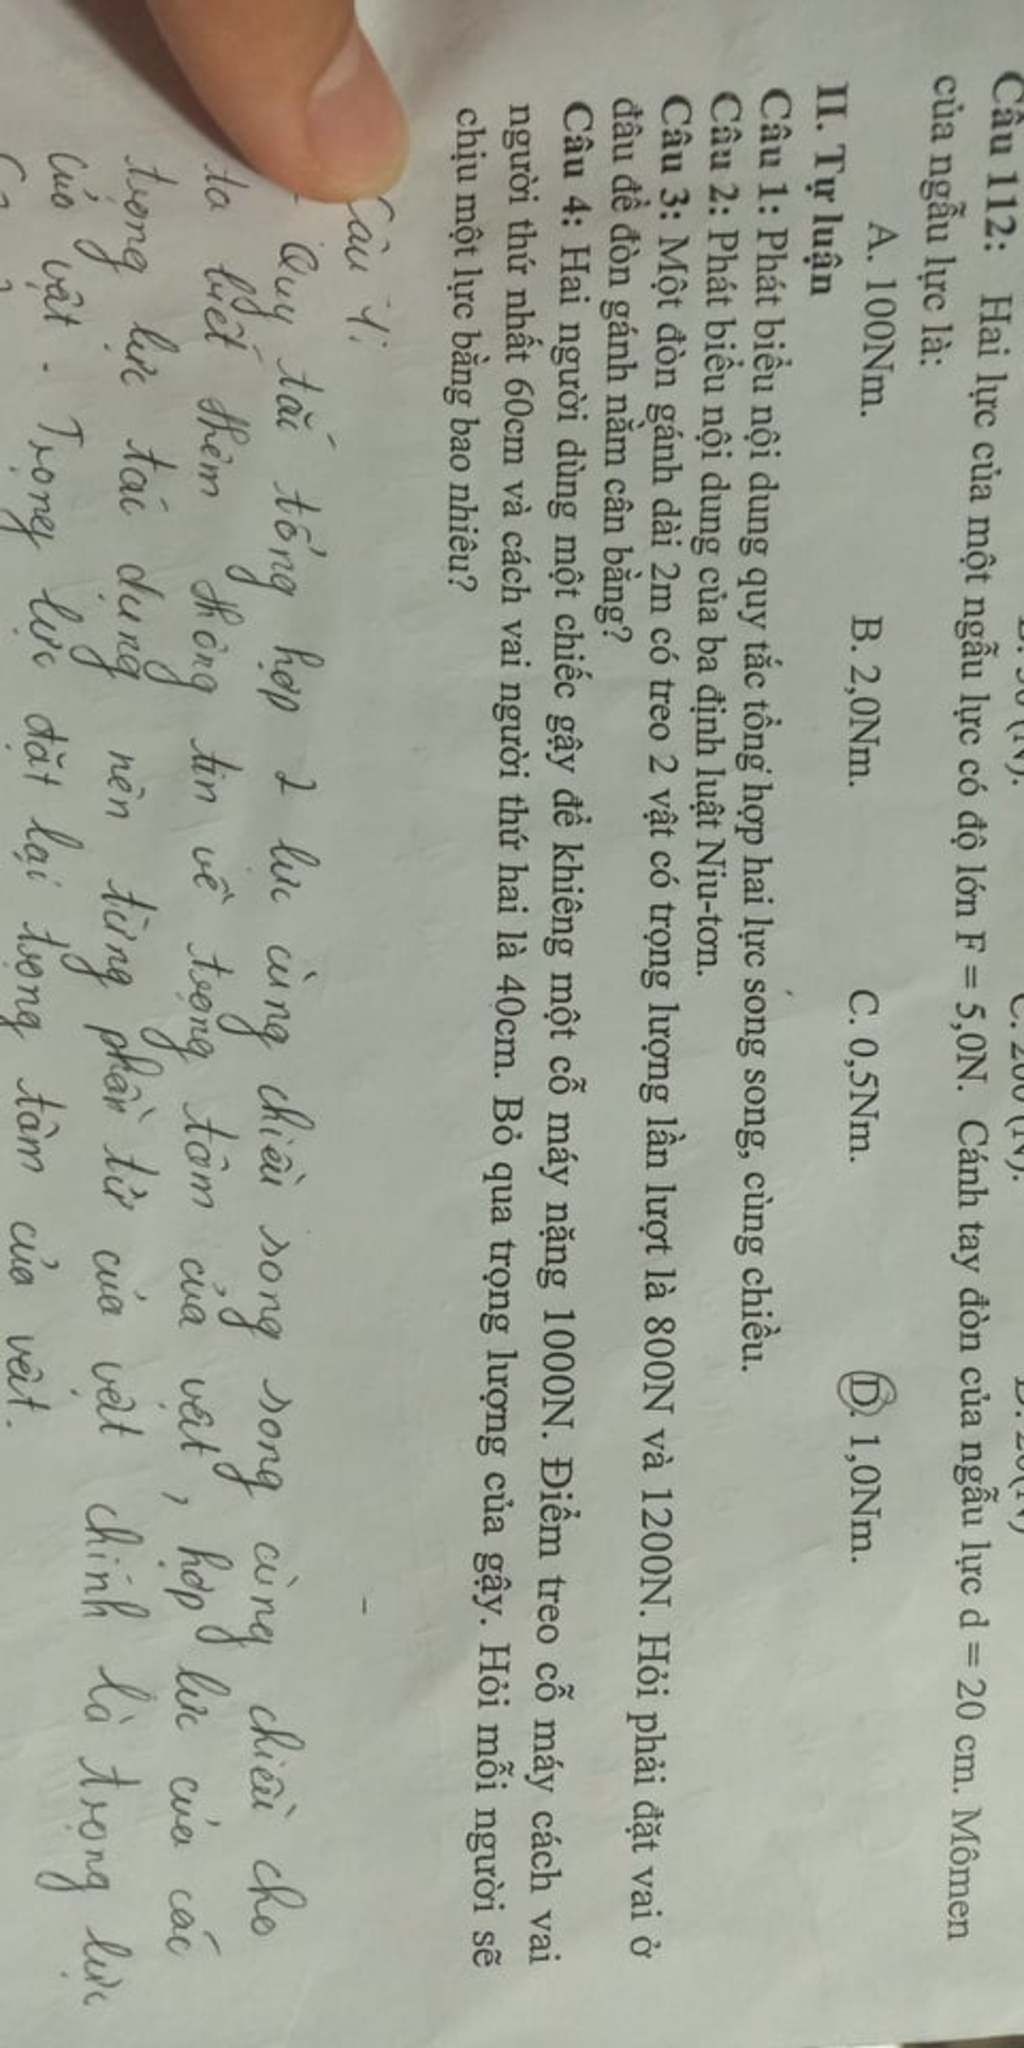 Câu 112: Hai lực của một ngẫu lực có độ lớn F = 5,0N. Cánh tay đòn của ngẫu lực d = 20 cm. Mômen
của ngẫu lực là:
A. 100Nm. B. 2,0Nm. C. 0,5Nm. D. 1,0Nm.
II. Tự luận
Câu 1: Phát biểu nội dung quy tắc tổng hợp hai lực song song, cùng chiều.
Câu 2: Phát biểu nội dung của ba định luật Niu-tơn.
Câu 3: Một đòn gánh dài 2m có treo 2 vật có trọng lượng lần lượt là 800N và 1200N. Hỏi phải đặt vai ở
đâu để đòn gánh nằm cân bằng?
Câu 4: Hai người dùng một chiếc gậy để khiêng một cỗ máy nặng 1000N. Điểm treo cỗ máy cách vai
người thứ nhất 60cm và cách vai người thứ hai là 40cm. Bỏ qua trọng lượng của gậy. Hỏi mỗi người sẽ
chịu một lực bằng bao nhiêu?
Câu 1:
- Quy tắc tổng hợp 2 lực cùng chiều song song cùng chiều cho
ta biết thêm thông tin về trọng tâm của vật, hợp lực của các
trọng lực tác dụng nên từng phần tử của vật chính là trọng lực
của vật. Trọng lực đặt lại trọng tâm của vật.